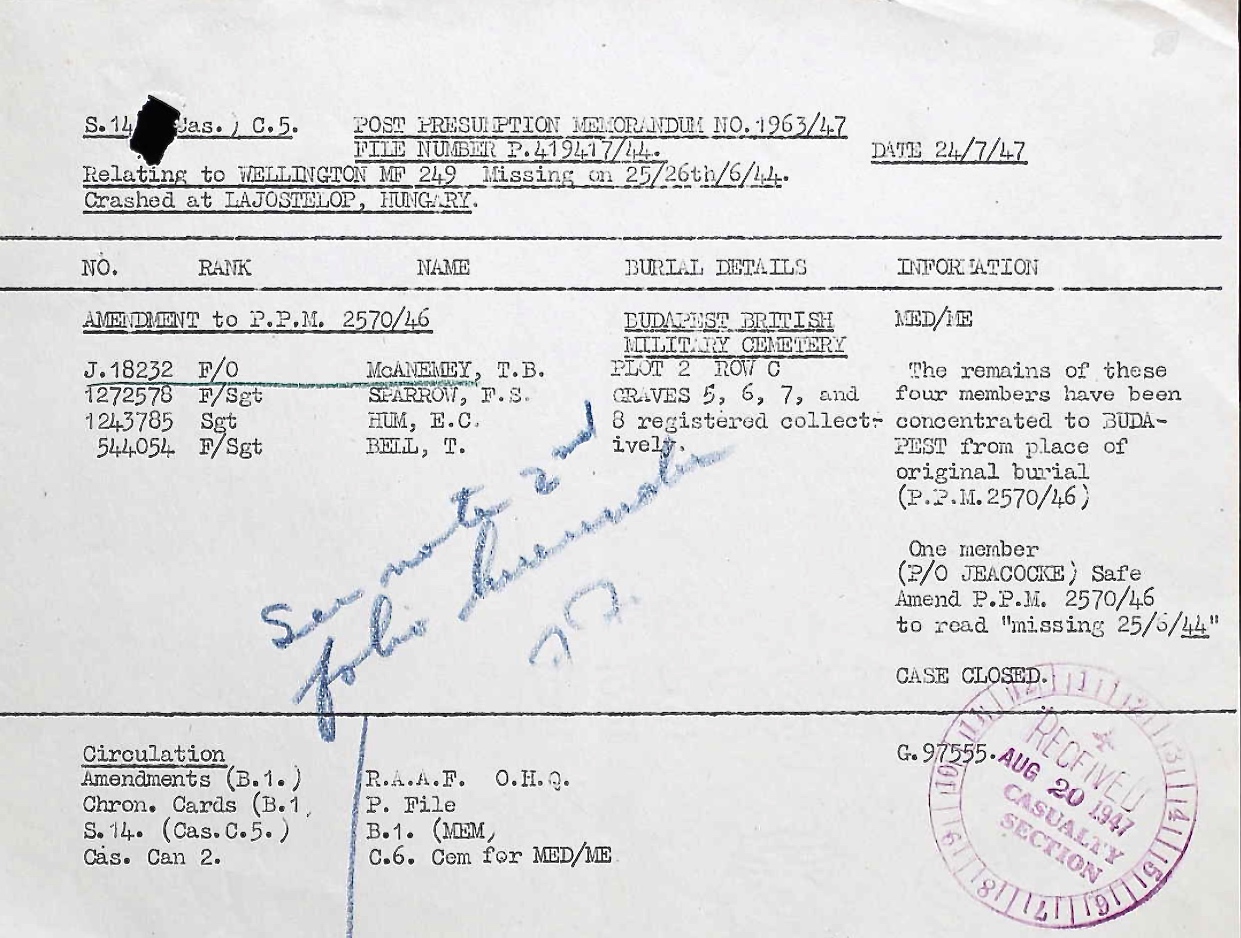 S.14 Cas.) C.5. POST PRESUMPTION MEMORANDUM NO.1963/47
FILE NUMBER P.419417/44.
DATE 24/7/47
Relating to WELLINGTON MF 249 Missing on 25/26th/6/44.
Crashed at LAJOSTELOP, HUNGARY.
NO. RANK NAME BURIAL DETAILS INFORMATION
AMENDMENT to P.P.M. 2570/46 BUDAPEST BRITISH MED/ME
MILITARY CEMETERY
J.18232 F/O McANEMEY, T.B. PLOT 2 ROW C The remains of these
1272578 F/Sgt SPARROW, F.S. GRAVES 5, 6, 7, and four members have been
1243785 Sgt HUM, E.C. 8 registered collect- concentrated to BUDA-
544054 F/Sgt BELL, T. ively. PEST from place of
original burial
(P.P.M.2570/46)
One member
(P/O JEACOCKE) Safe
Amend P.P.M. 2570/46
to read "missing 25/6/44"
CASE CLOSED.
See note 2nd
folio hereunder
Circulation G.97555.
Amendments (B.1.) R.A.A.F. O.H.Q.
Chron. Cards (B.1. P. File
S.14. (Cas.C.5.) B.1. (MEM)
Cas. Can 2. C.6. Cem for MED/ME
RECEIVED
AUG 20 1947
CASUALTY
SECTION
12 1 2 3 4 5 6 7 8 9 10 11